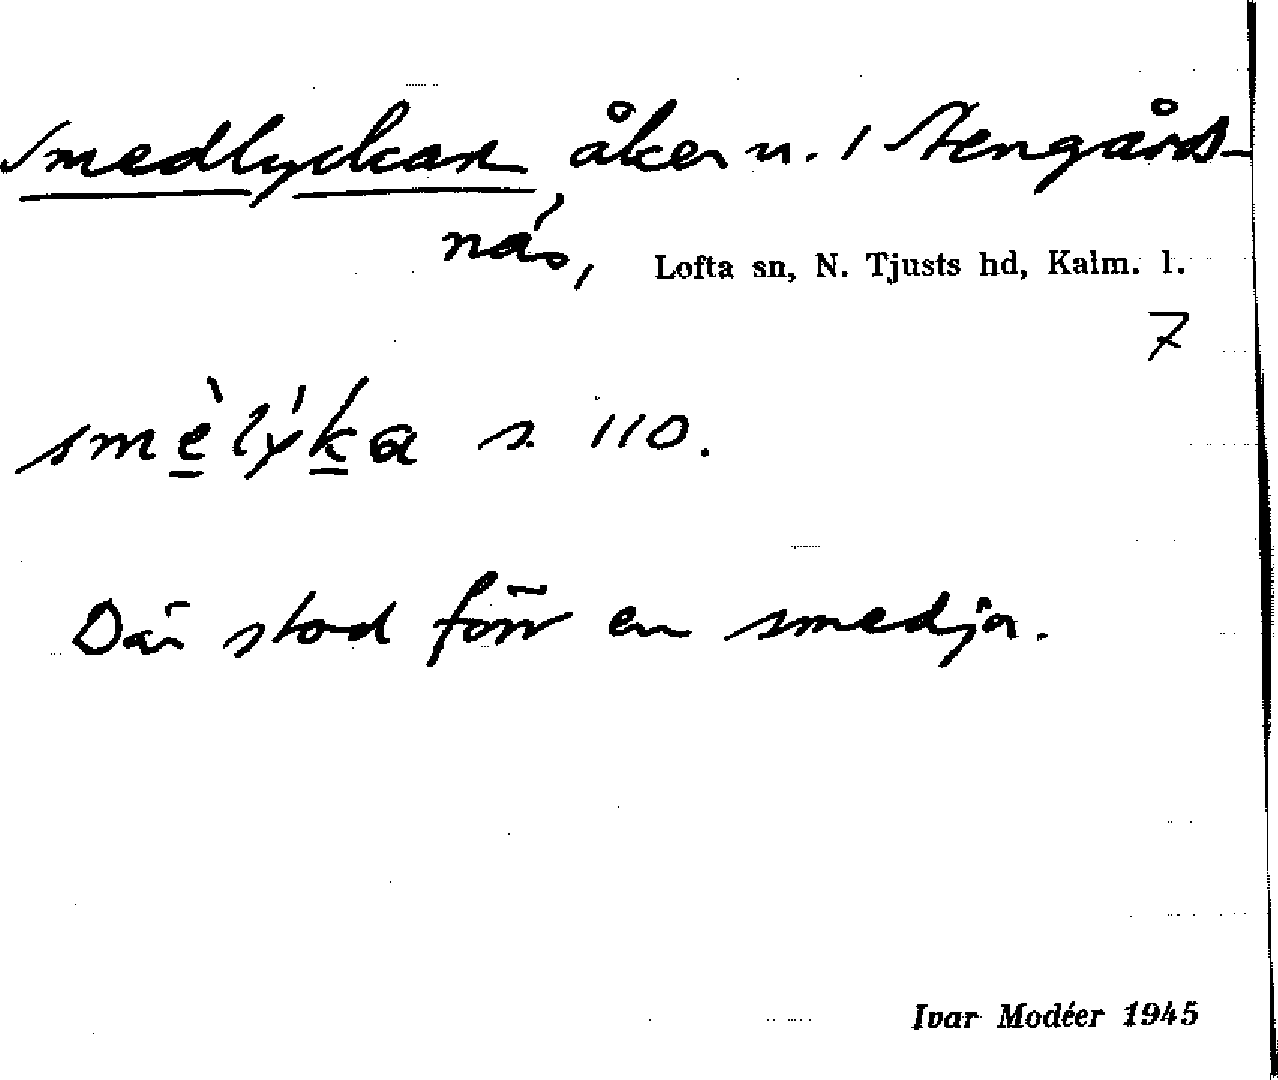 Smedlyckan åker n. 1 Stengårds-
näs, Lofta sn, N. Tjusts hd, Kalm. l.
7
smèlýka s. 110.
Där stod förr en smedja.
Ivar Modéer 1945